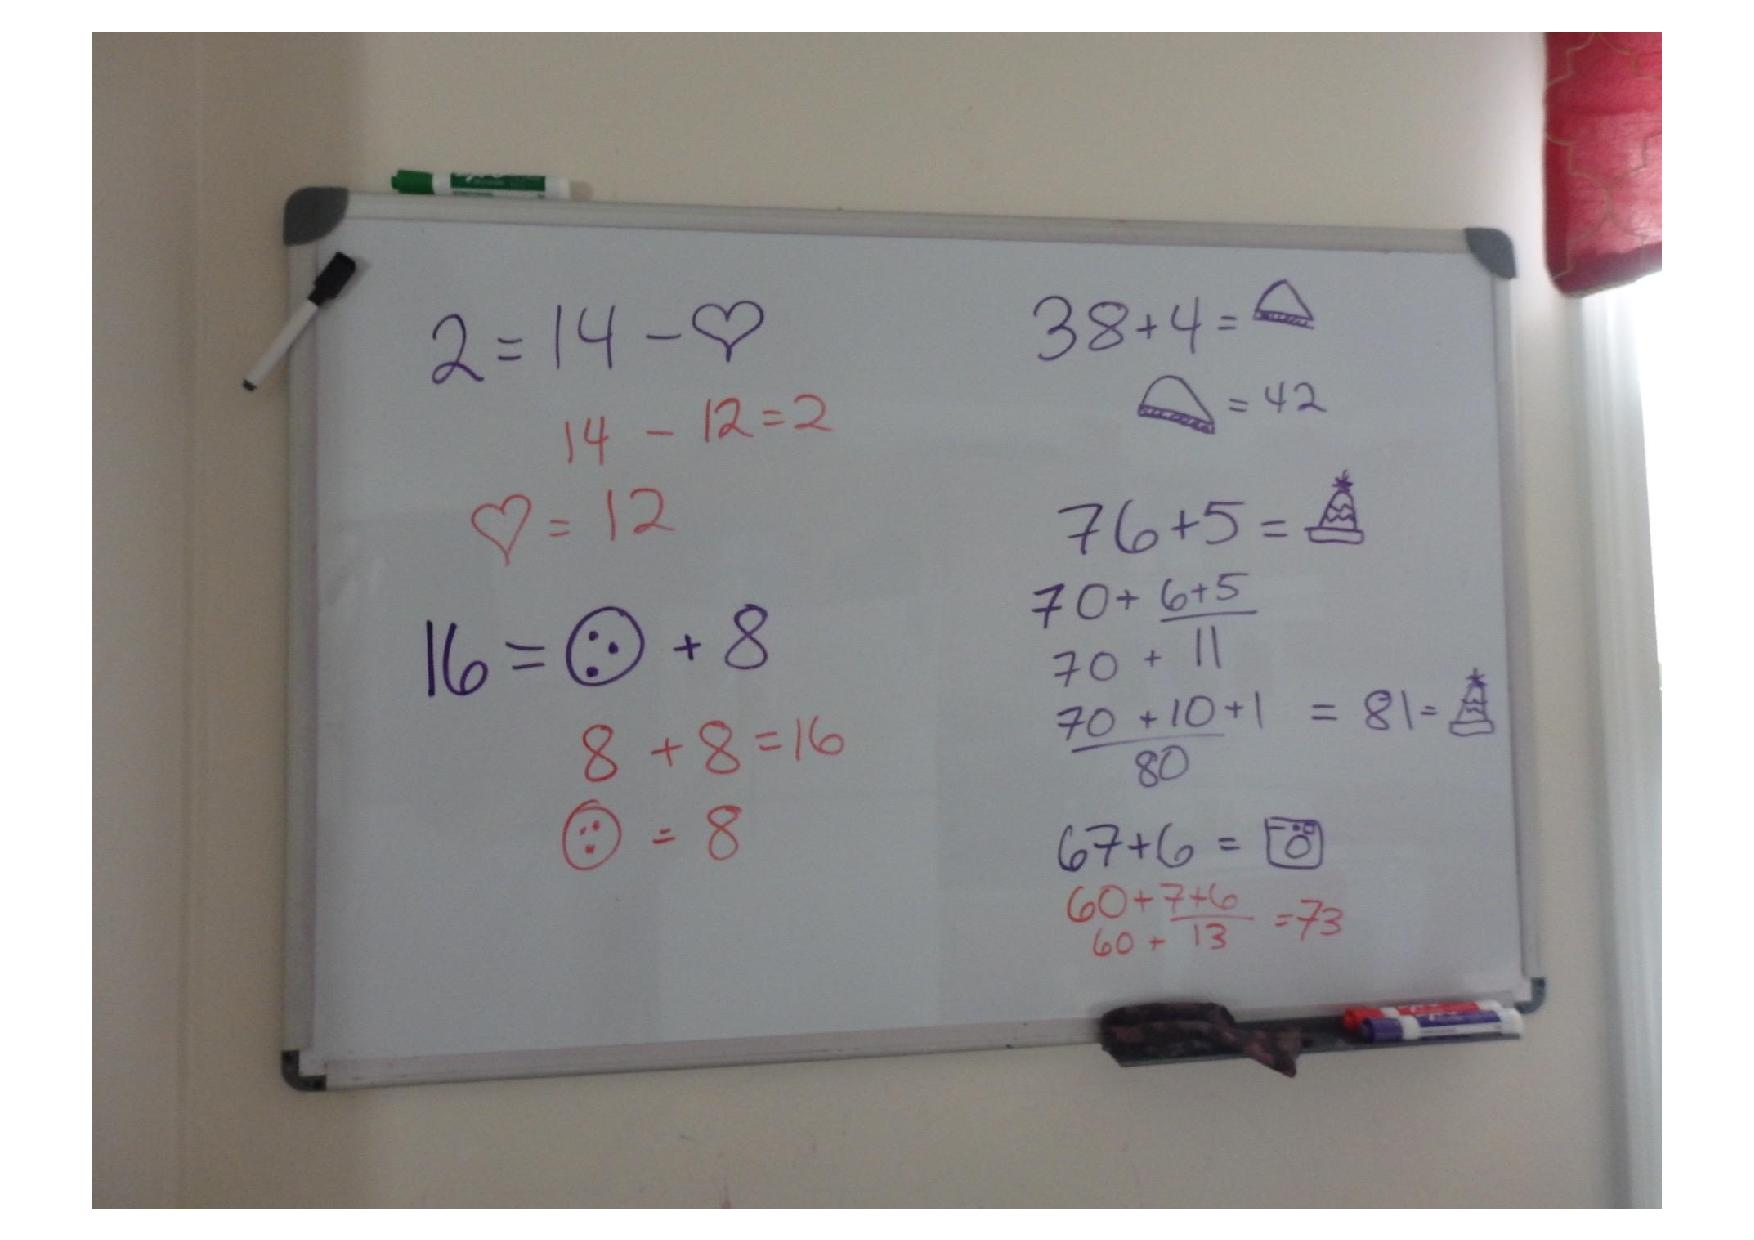 2 = 14 - ♡
14 - 12 = 2
♡ = 12
16 = ☺ + 8
8 + 8 = 16
☺ = 8
38 + 4 =
= 42
76 + 5 =
70 + 6 + 5
11
70 + 11
70 + 10 + 1 = 81 =
80
67 + 6 =
60 + 7 + 6 = 73
60 + 13